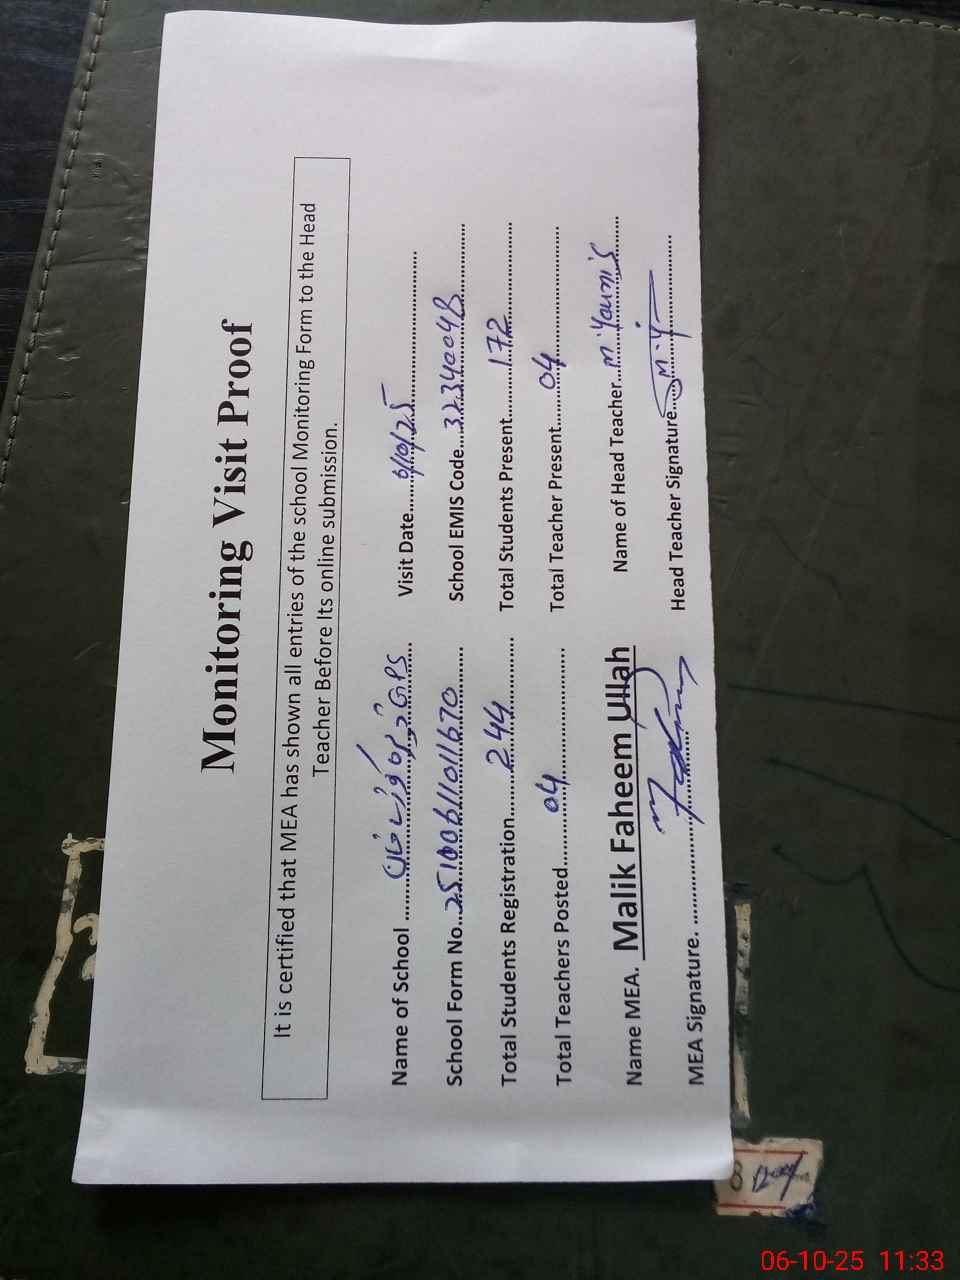 Monitoring Visit Proof
It is certified that MEA has shown all entries of the school Monitoring Form to the Head
Teacher Before Its online submission.
Name of School ............ GPS ...... Visit Date.....6/10/25..........
School Form No...251006110111670...... School EMIS Code....32340048..........
Total Students Registration.......244......... Total Students Present.........172..........
Total Teachers Posted.........04.......... Total Teacher Present.......04..........
Name MEA. Malik Faheem Ullah Name of Head Teacher...M. Younis......
MEA Signature. .......... Head Teacher Signature....M.Y..........
B
06-10-25 11:33